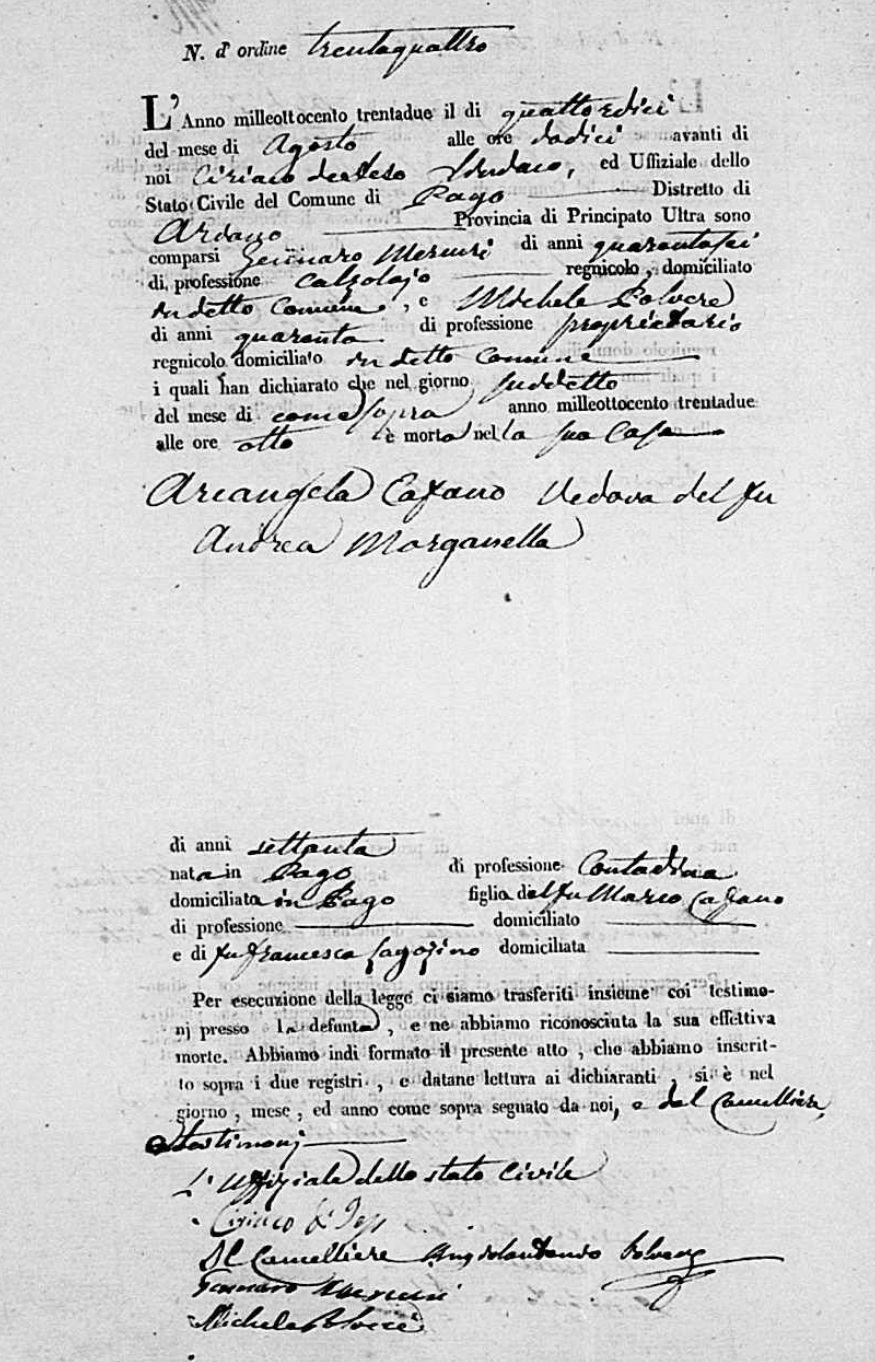 N. d' ordine trentaquattro
L' Anno milleottocento trentadue il di quattordici
del mese di Agosto alle ore dodici avanti di
noi Ciriaco Sindaco, ed Uffiziale dello
Stato Civile del Comune di Pago Distretto di
Ariano Provincia di Principato Ultra sono
comparsi Gennaro Mercuri di anni quarantasei
di professione calzolajo regnicolo, domiciliato
in detto Comune, e Michele Polvere
di anni quaranta di professione proprietario
regnicolo domiciliato in detto Comune
i quali han dichiarato che nel giorno suddetto
del mese di come sopra anno milleottocento trentadue
alle ore otto è morta nella sua Casa
Arcangela Cafano Vedova del fu
Andrea Morganella
di anni settanta
nata in Pago di professione Contadina
domiciliata in Pago figlia del fu Marco Cafano
di professione domiciliato
e di fu Francesca domiciliata
Per esecuzione della legge ci siamo trasferiti insieme coi testimo-
nj presso la defunta, e ne abbiamo riconosciuta la sua effettiva
morte. Abbiamo indi formato il presente atto, che abbiamo inscrit-
to sopra i due registri, e datane lettura ai dichiaranti, si è nel
giorno, mese, ed anno come sopra segnato da noi, e dal Cancelliere,
e testimonj
L' Uffiziale dello stato Civile
Ciriaco
Il Cancelliere Polvere
Gennaro Mercuri
Michele Polvere